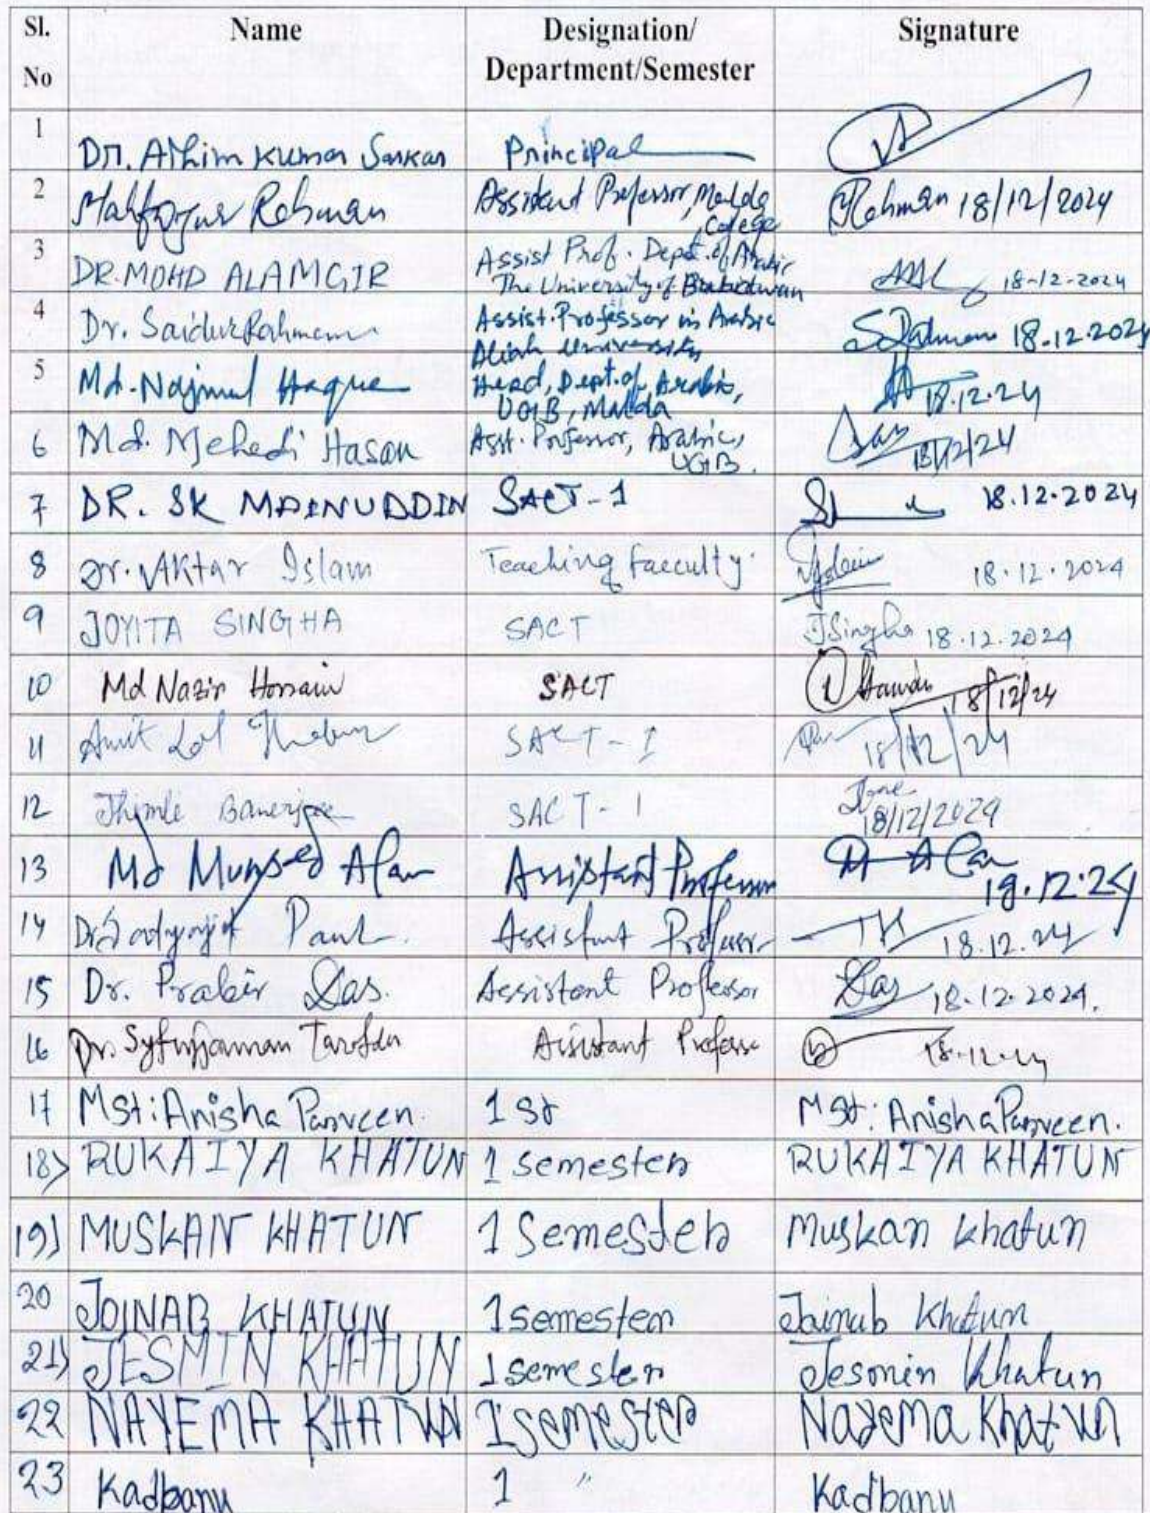 Sl. No Name Designation/ Department/Semester Signature
1 Dr. Ashim Kumar Sarkar Principal
2 Mahfojur Rahman Assistant Professor, Malda College Rahman 18/12/2024
3 DR. MOHD ALAMGIR Assist Prof. Dept. of Arabic The University of Burdwan 18-12-2024
4 Dr. Saidur Rahman Assist. Professor in Arabic Aliah University SRahman 18.12.2024
5 Md. Najmul Haque Head, Dept. of Arabic, UGB, Malda 18.12.24
6 Md. Mehedi Hasan Asst. Professor, Arabic, UGB. 18/12/24
7 DR. SK MAINUDDIN SACT-1 18.12.2024
8 Dr. Aktar Islam Teaching faculty 18.12.2024
9 JOYITA SINGHA SACT JSingha 18.12.2024
10 Md Nazir Hossain SACT 18/12/24
11 Amit Lal SACT-I 18/12/24
12 Banerjee SACT-1 18/12/2024
13 Md Mursed Alam Assistant Professor 19.12.24
14 Paul. Assistant Professor 18.12.24
15 Dr. Prabir Das. Assistant Professor Das 18.12.2024.
16 Dr. Tarafdar Assistant Professor 18.12.24
17 Mst: Anisha Parveen. 1st Mst: Anisha Parveen.
18) RUKAIYA KHATUN 1 semester RUKAIYA KHATUN
19) MUSKAN KHATUN 1 Semester Muskan Khatun
20 JOINAB KHATUN 1 semester Jainab Khatun
21) JESMIN KHATUN 1 semester Jesmin Khatun
22 NAYEMA KHATUN 1 semester Nayema Khatun
23 Kadbanu 1 " Kadbanu